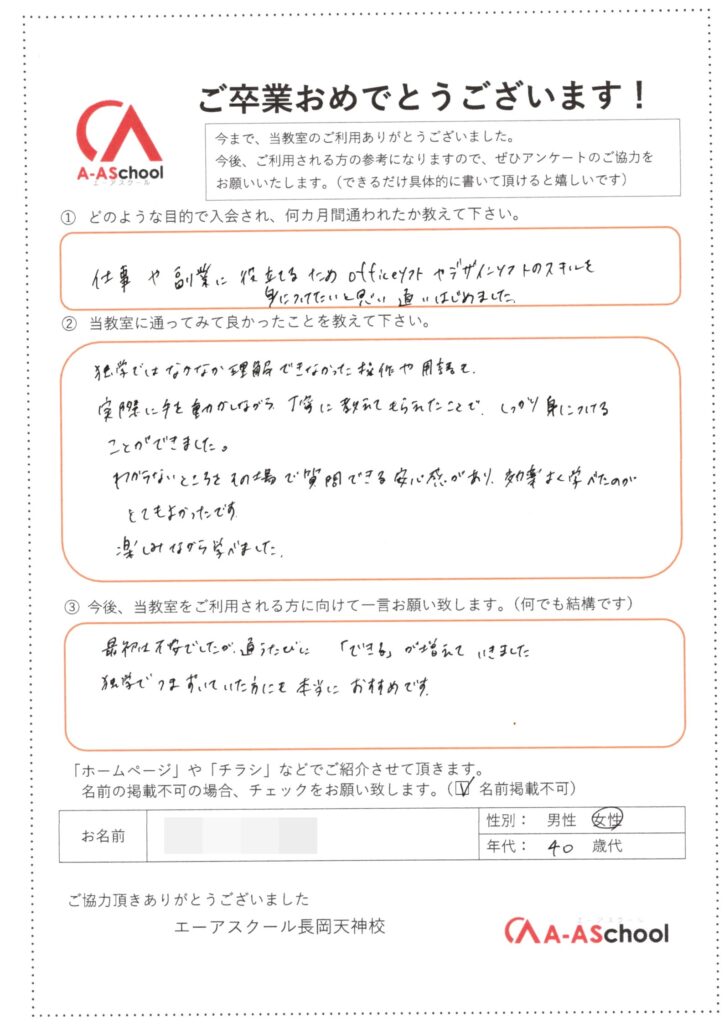 ご卒業おめでとうございます！
A-ASchool
エーアスクール
今まで、当教室のご利用ありがとうございました。
今後、ご利用される方の参考になりますので、ぜひアンケートのご協力を
お願いいたします。（できるだけ具体的に書いて頂けると嬉しいです）
① どのような目的で入会され、何カ月間通われたか教えて下さい。
仕事や副業に役立てるためofficeソフトやデザインソフトのスキルを
身につけたいと思い通いはじめました。
② 当教室に通ってみて良かったことを教えて下さい。
独学ではなかなか理解できなかった操作や用語を、
実際に手を動かしながら、丁寧に教えてもらえたことで、しっかり身につける
ことができました。
わからないところをその場で質問できる安心感があり、効率よく学べたのが
とてもよかったです。
楽しみながら学べました。
③ 今後、当教室をご利用される方に向けて一言お願い致します。（何でも結構です）
最初は不安でしたが、通うたびに「できる」が増えていきました
独学でつまずいていた方にも本当におすすめです。
「ホームページ」や「チラシ」などでご紹介させて頂きます。
名前の掲載不可の場合、チェックをお願い致します。（☑ 名前掲載不可）
お名前
性別： 男性 女性
年代： 40 歳代
ご協力頂きありがとうございました
エーアスクール長岡天神校
エーアスクール
A-ASchool